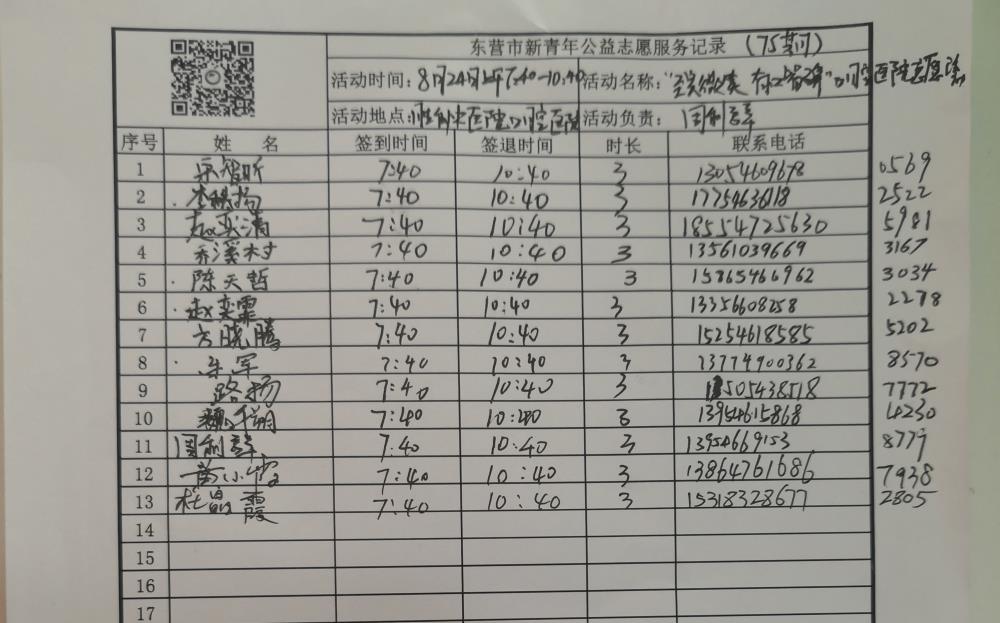 东营市新青年公益志愿服务记录 (75期)
活动时间: 8月24日上午7:40-10:40 活动名称:
活动地点: 活动负责: 周利辉
序号 姓名 签到时间 签退时间 时长 联系电话
1 7:40 10:40 3 13054609678 0569
2 7:40 10:40 3 2522
3 7:40 10:40 3 18554725630 5981
4 7:40 10:40 3 13561039669 3167
5 陈天哲 7:40 10:40 3 15865466962 3034
6 赵奕霏 7:40 10:40 3 13356608258 2278
7 方晓腾 7:40 10:40 3 15254618585 5202
8 7:40 10:40 3 13774900362 8570
9 路扬 7:40 10:40 3 7772
10 7:40 10:40 3 13954615868 4230
11 7:40 10:40 3 13954669153 8779
12 黄小霞 7:40 10:40 3 13864761686 7938
13 杜晶霞 7:40 10:40 3 15318328677 2805
14
15
16
17